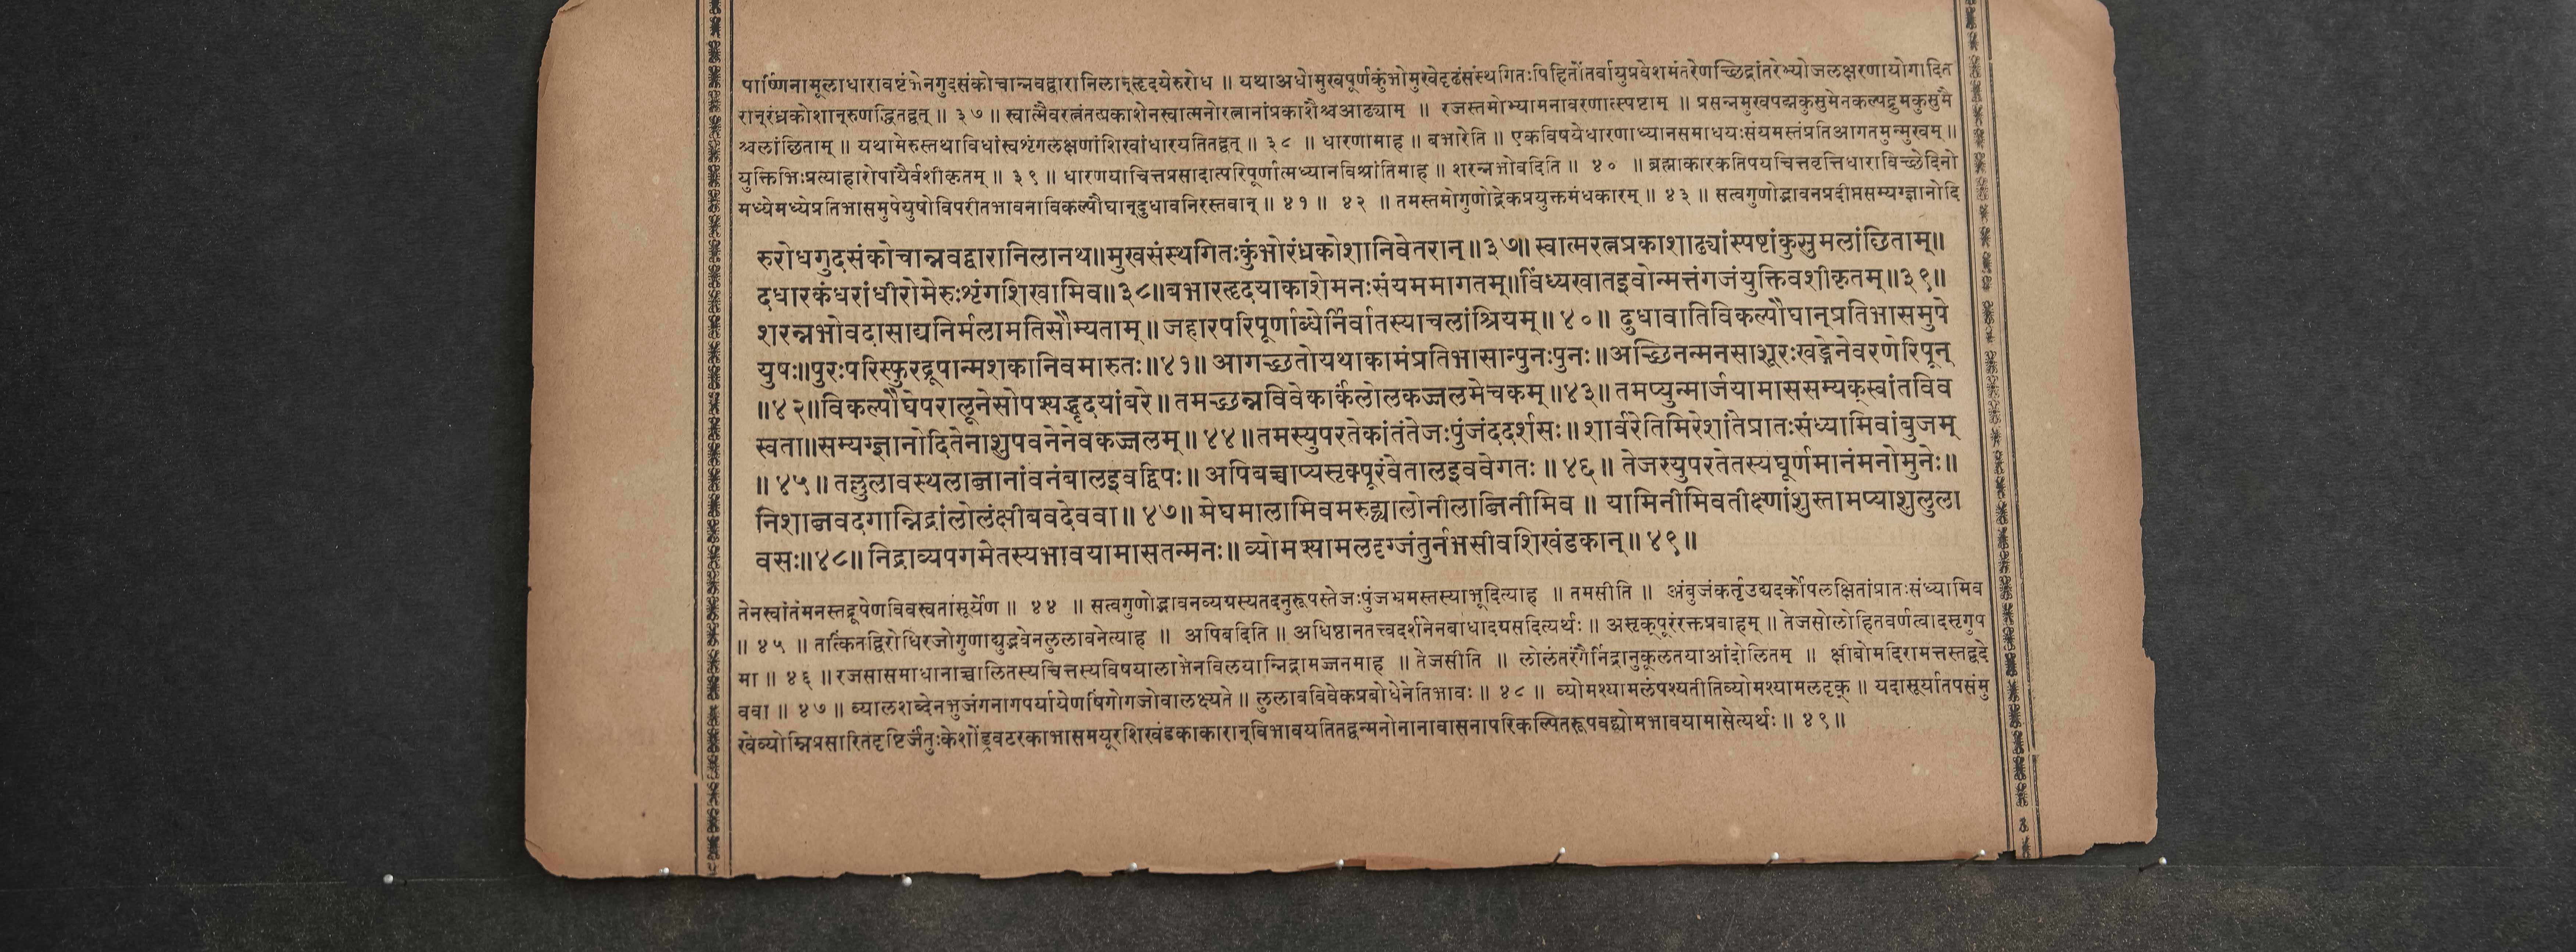 पार्ष्णिनामूलाधारावष्टंभेनगुदसंकोचान्नवद्वारानिलान्हृदयेरुरोध ॥ यथाअधोमुखपूर्णकुंभोमुखेदृढंसंस्थगितःपिहितोंतर्वायुप्रवेशमंतरेणच्छिद्रांतरेभ्योजलक्षरणायोगादित
रान्रंध्रकोशान्रुणद्धितद्वत् ॥ ३७ ॥ स्वात्मैवरत्नंतत्प्रकाशेनस्वात्मनोरत्नानांप्रकाशैश्चआढ्याम् ॥ रजस्तमोभ्यामनावरणात्स्पष्टाम् ॥ प्रसन्नमुखपद्मकुसुमेनकल्पद्रुमकुसुमै
श्चलांछिताम् ॥ यथामेरुस्तथाविधांस्वशृंगलक्षणांशिखांधारयतितद्वत् ॥ ३८ ॥ धारणामाह ॥ बभारेति ॥ एकविषयेधारणाध्यानसमाधयःसंयमस्तंप्रतिआगतमुन्मुखम् ॥
युक्तिभिःप्रत्याहारोपायैर्वशीकृतम् ॥ ३९ ॥ धारणयाचित्तप्रसादात्परिपूर्णात्मध्यानविश्रांतिमाह ॥ शरन्नभोवदिति ॥ ४० ॥ ब्रह्माकारकतिपयचित्तवृत्तिधाराविच्छेदिनो
मध्येमध्येप्रतिभासमुपेयुषोविपरीतभावनाविकल्पौघान्दुधावनिरस्तवान् ॥ ४१ ॥ ४२ ॥ तमस्तमोगुणोद्रेकप्रयुक्तमंधकारम् ॥ ४३ ॥ सत्वगुणोद्भावनप्रदीप्तसम्यग्ज्ञानोदि
रुरोधगुदसंकोचान्नवद्वारानिलानथ॥मुखसंस्थगितःकुंभोरंध्रकोशानिवेतरान्॥३७॥ स्वात्मरत्नप्रकाशाढ्यांस्पष्टांकुसुमलांछिताम्॥
दधारकंधरांधीरोमेरुःशृंगशिखामिव॥३८॥बभारहृदयाकाशेमनःसंयममागतम्॥विंध्यखातइवोन्मत्तंगजंयुक्तिवशीकृतम्॥३९॥
शरन्नभोवदासाद्यनिर्मलामतिसौम्यताम्॥ जहारपरिपूर्णाब्धेर्निर्वातस्याचलांश्रियम्॥४०॥ दुधावातिविकल्पौघान्प्रतिभासमुपे
युषः॥पुरःपरिस्फुरद्रूपान्मशकानिवमारुतः॥४१॥ आगच्छतोयथाकामंप्रतिभासान्पुनःपुनः॥अच्छिनन्मनसाशूरःखड्गेनेवरणेरिपून्
॥४२॥विकल्पौघेपरालूनेसोपश्यद्धृदयांबरे॥ तमच्छन्नविवेकार्कंलोलकज्जलमेचकम्॥४३॥ तमप्युन्मार्जयामाससम्यक्स्वांतविव
स्वता॥सम्यग्ज्ञानोदितेनाशुपवनेनेवकज्जलम्॥४४॥तमस्युपरतेकांतंतेजःपुंजंददर्शसः॥शार्वरेतिमिरेशांतेप्रातःसंध्यामिवांबुजम्
॥४५॥ तल्लुलावस्थलाब्जानांवनंबालइवद्विपः॥ अपिबच्चाप्यसृक्पूरंवेतालइववेगतः॥४६॥ तेजस्युपरतेतस्यघूर्णमानंमनोमुनेः॥
निशाब्जवदगान्निद्रांलोलंक्षीबवदेववा॥४७॥ मेघमालामिवमरुद्व्यालोनीलाब्जिनीमिव॥ यामिनीमिवतीक्ष्णांशुस्तामप्याशुलुला
वसः॥४८॥ निद्राव्यपगमेतस्यभावयामासतन्मनः॥ व्योमश्यामलदृग्जंतुर्नभसीवशिखंडकान्॥४९॥
तेनस्वांतंमनस्तद्रूपेणविवस्वतासूर्येण ॥ ४४ ॥ सत्वगुणोद्भावनव्यग्रस्यतदनुरूपस्तेजःपुंजभ्रमस्तस्याभूदित्याह ॥ तमसीति ॥ अंबुजंकर्तृउद्यदर्कोपलक्षितांप्रातःसंध्यामिव
॥ ४५ ॥ तत्किंतद्विरोधिरजोगुणाद्युद्भवेनलुलावनेत्याह ॥ अपिबदिति ॥ अधिष्ठानतत्त्वदर्शनेनबाधादग्रसदित्यर्थः ॥ असृक्पूरंरक्तप्रवाहम् ॥ तेजसोलोहितवर्णत्वादसृगुप
मा ॥ ४६ ॥ रजसासमाधानाच्चालितस्यचित्तस्यविषयालाभेनविलयान्निद्रामज्जनमाह ॥ तेजसीति ॥ लोलंतरंगैर्निद्रानुकूलतयाआंदोलितम् ॥ क्षीबोमदिरामत्तस्तद्वदे
ववा ॥ ४७ ॥ व्यालशब्देनभुजंगनागपर्यायेणषिंगोगजोवालक्ष्यते ॥ लुलावविवेकप्रबोधेनेतिभावः ॥ ४८ ॥ व्योमश्यामलंपश्यतीतिव्योमश्यामलदृक् ॥ यदासूर्यातपसंमु
खेव्योम्निप्रसारितदृष्टिर्जंतुःकेशोंड्रवटरकाभासमयूरशिखंडकाकारान्विभावयतितद्वन्मनोनानावासनापरिकल्पितरूपवद्व्योमभावयामासेत्यर्थः ॥ ४९ ॥